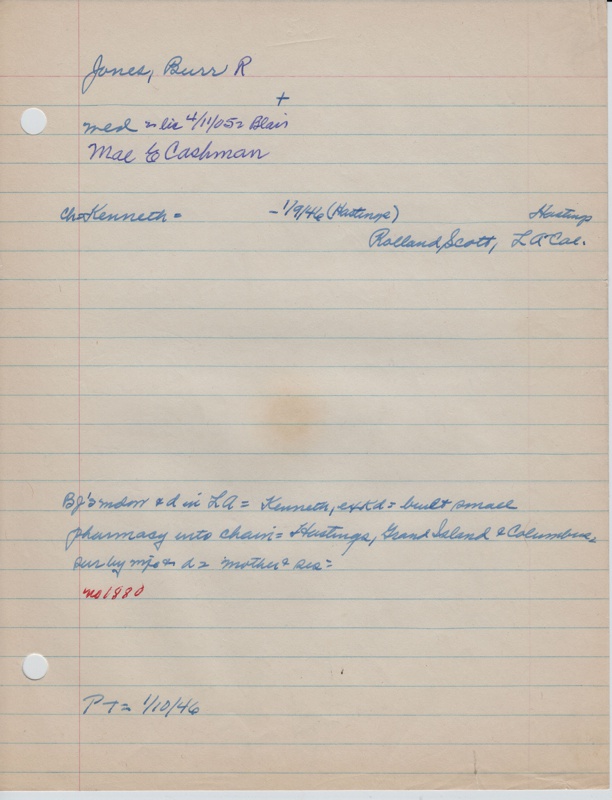 Jones, Burr R
+
med = lic 4/11/05 = Blair
Mae E Cashman
ch = Kenneth = - 1/9/46 (Hastings) Hastings
Rolland Scott, LA Cal.
BJ's widow & d in LA = Kenneth, = built small
pharmacy into chain = Hastings, Grand Island & Columbus,
sur by & d = mother & sis =
no 1880
PT = 1/10/46